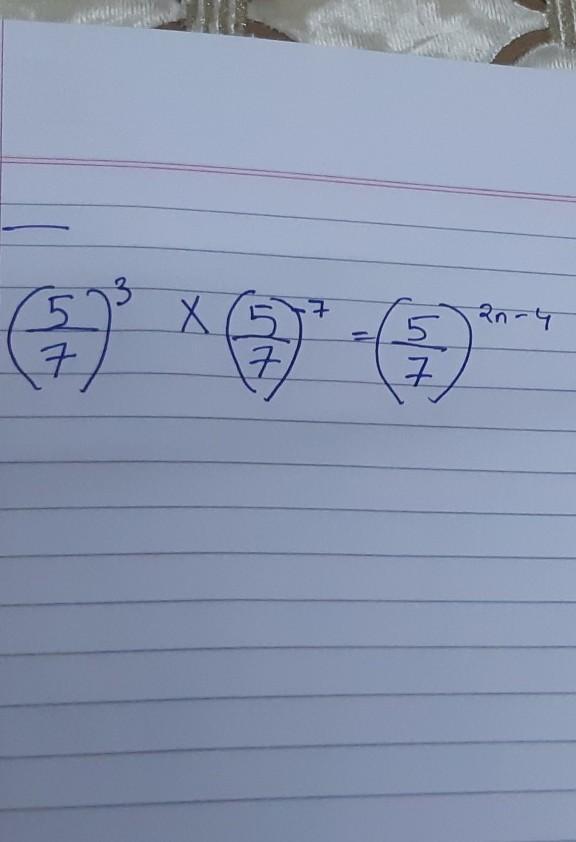 (5/7)³ × (5/7)⁻⁷ = (5/7)²ⁿ⁻⁴